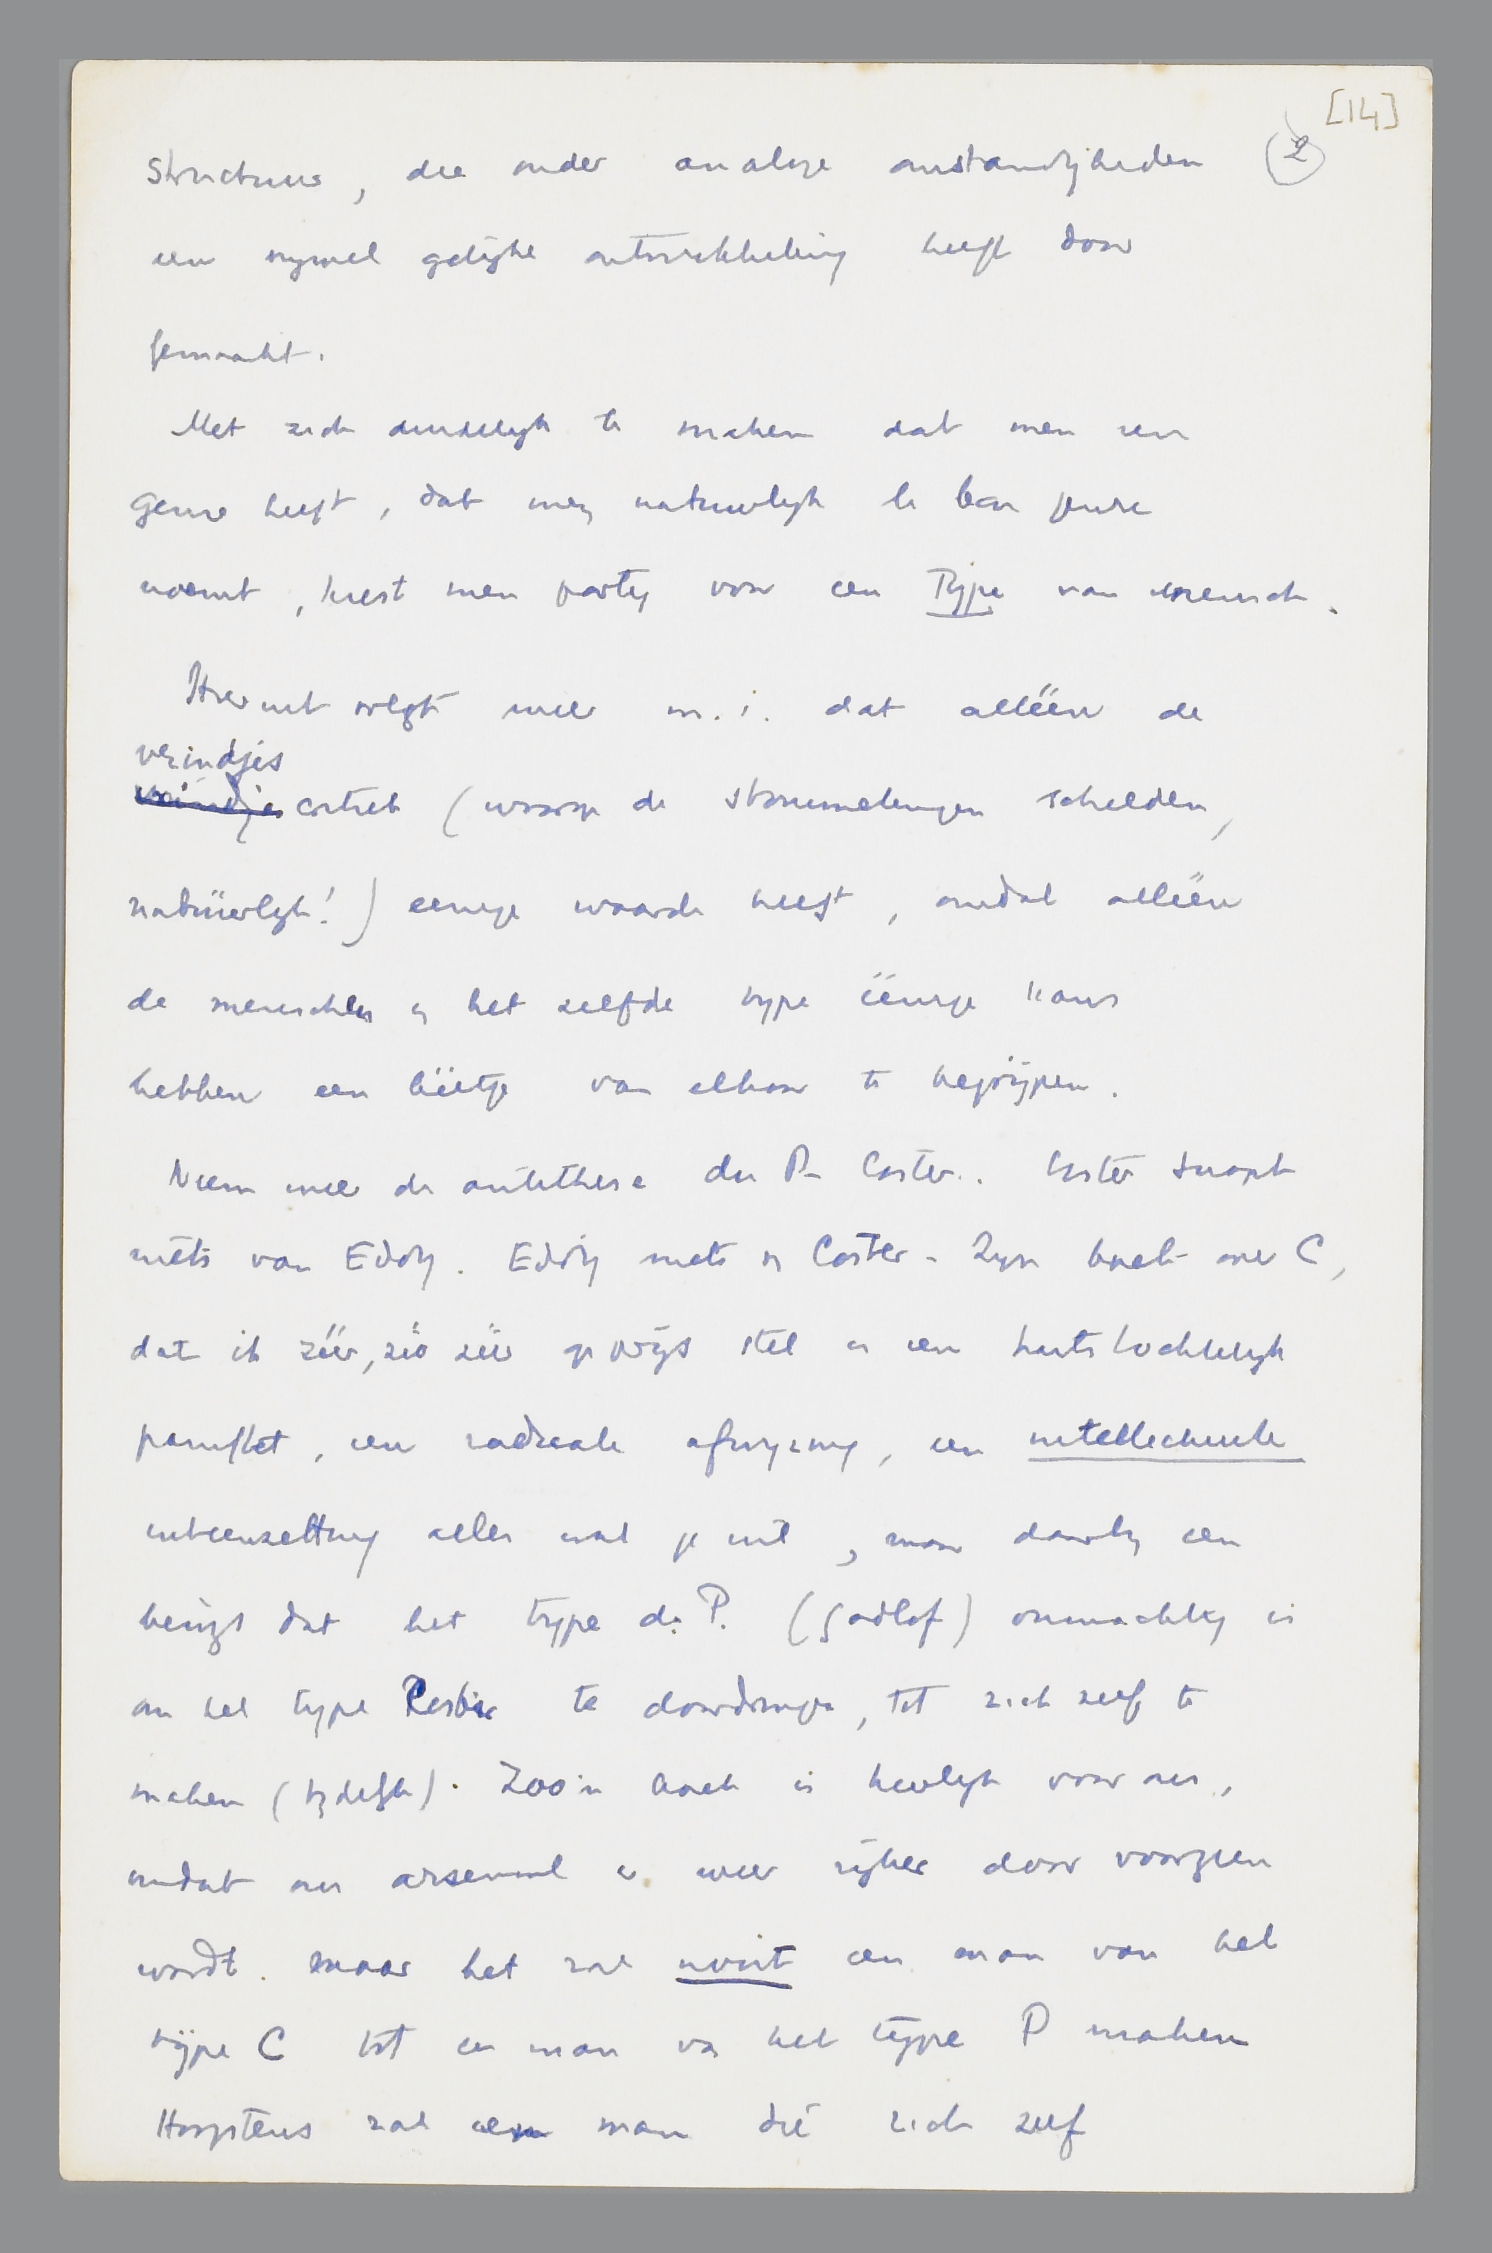 [14]
structuur, die onder analoge omstandigheden (2)
een nagenoeg gelijke ontwikkeling heeft door
gemaakt.
Met zich duidelijk te maken dat men een
genre heeft, dat men natuurlijk le bon genre
noemt, kiest men partij voor een Type van mensch.
Hieruit volgt weer m.i. dat alléén de
vriendjes
critiek (waarop de stommelingen schelden,
natuurlijk!) eenige waarde heeft, omdat alléén
de menschen v het zelfde type éénige kans
hebben een béétje van elkaar te begrijpen.
Neem weer de antithese du P - Coster. Coster snapt
niets van Eddy. Eddy niets v Coster - Zijn boek over C,
dat ik zéér, zéér zéér op prijs stel is een hartstochtelijk
pamflet, een radicale afwijzing, een intellectueele
uiteenzetting alles wat je wil, maar daarbij een
bewijs dat het type d. P. (godlof) onmachtig is
om het type Coster te doordringen, tot zich zelf te
maken (tijdelijk). Zoo'n boek is heerlijk voor ons,
omdat ons arsenaal er weer rijker door voorzien
wordt. maar het zal nooit een man van het
type C tot een man van het type P maken
Hoogstens zal een man die zich zelf